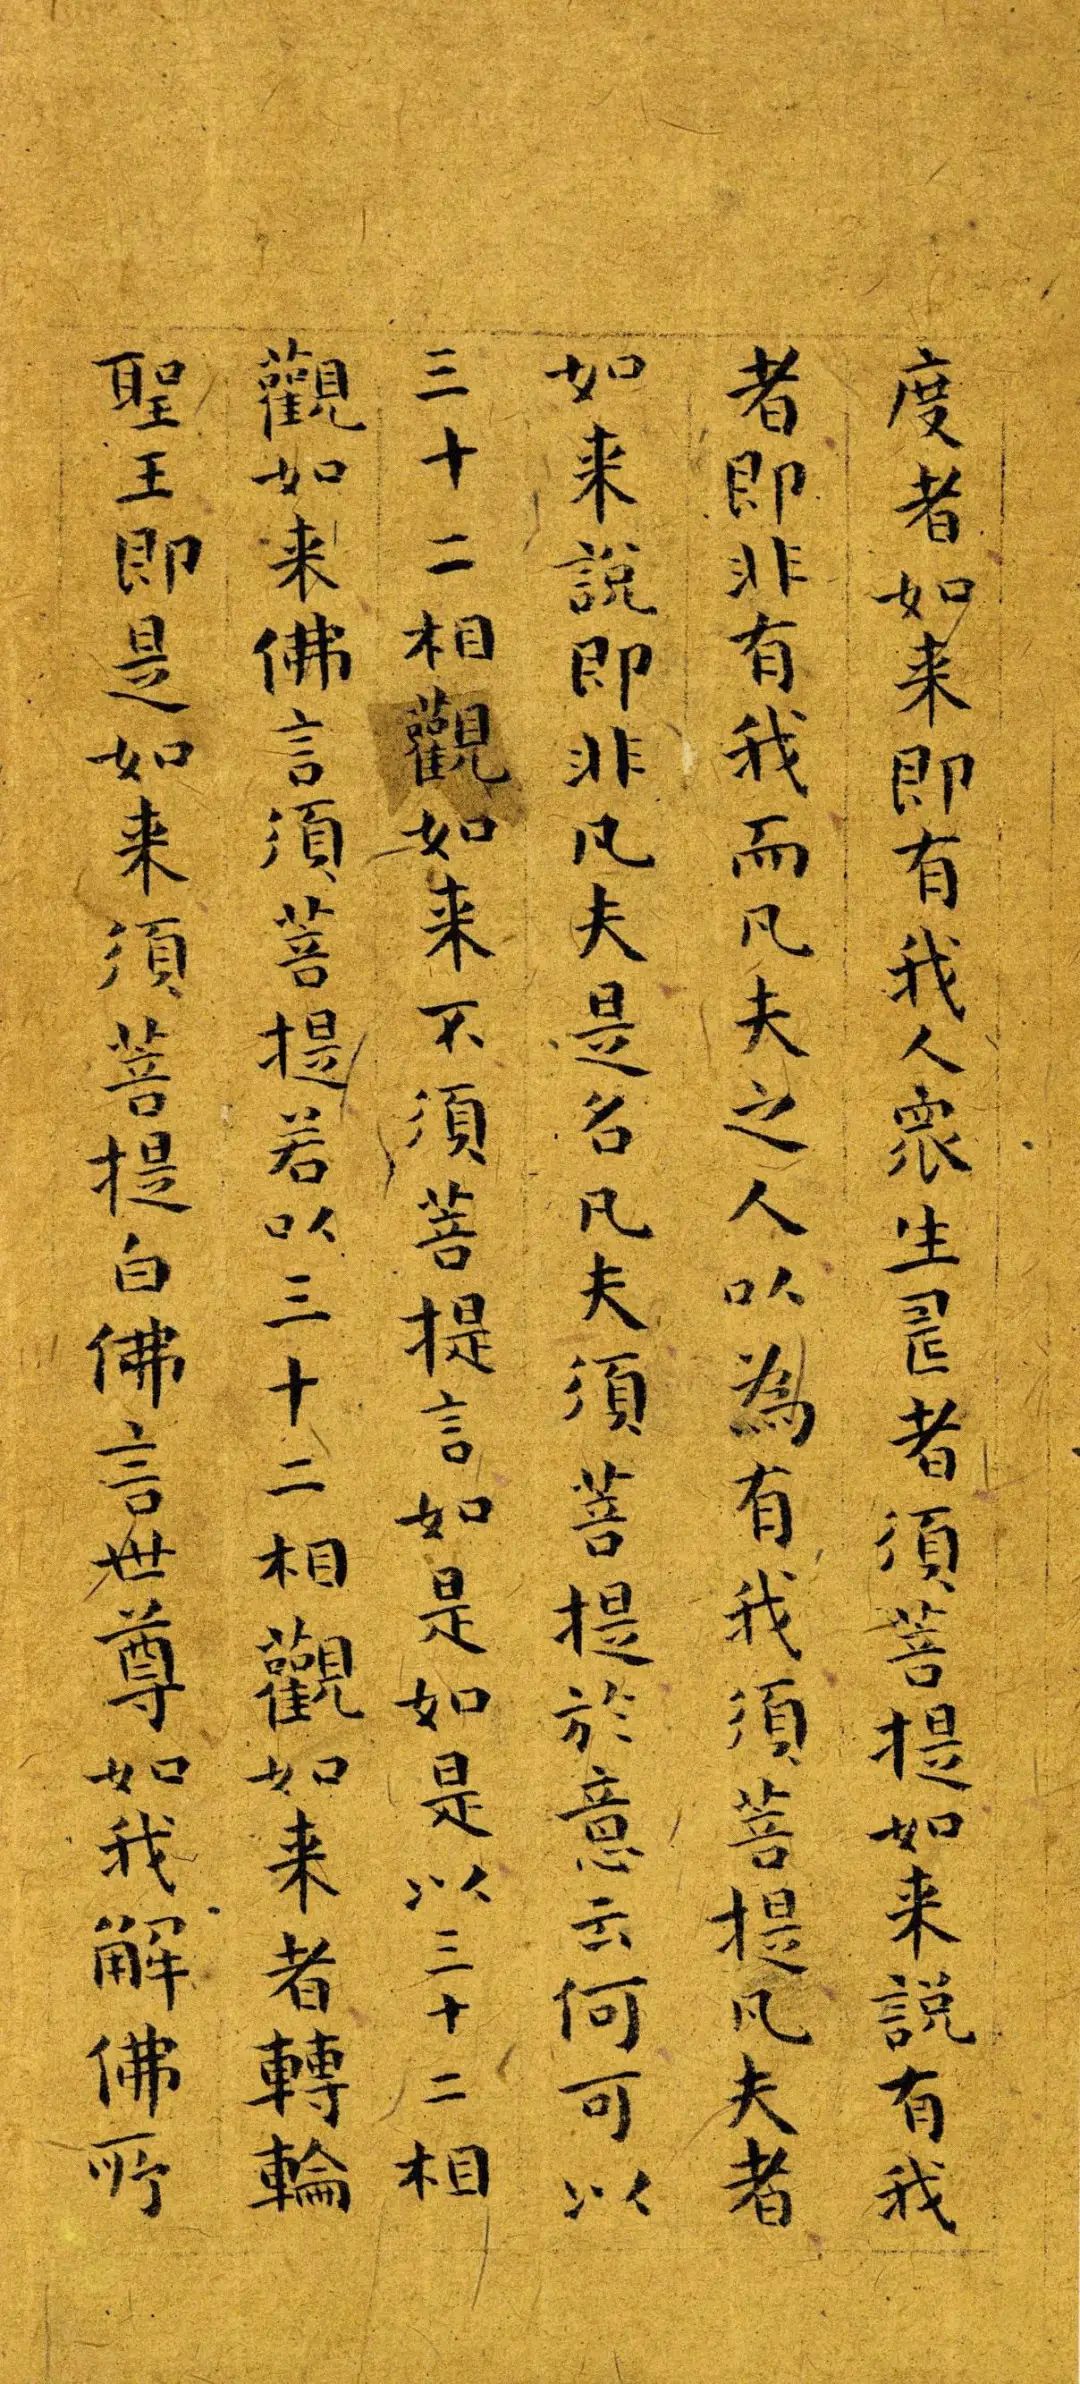 度者如来即有我人衆生𦓤者須菩提如来說有我
者即非有我而凡夫之人以為有我須菩提凡夫者
如来說即非凡夫是名凡夫須菩提於意云何可以
三十二相觀如来不須菩提言如是如是以三十二相
觀如来佛言須菩提若以三十二相觀如来者轉輪
聖王即是如来須菩提白佛言世尊如我解佛所